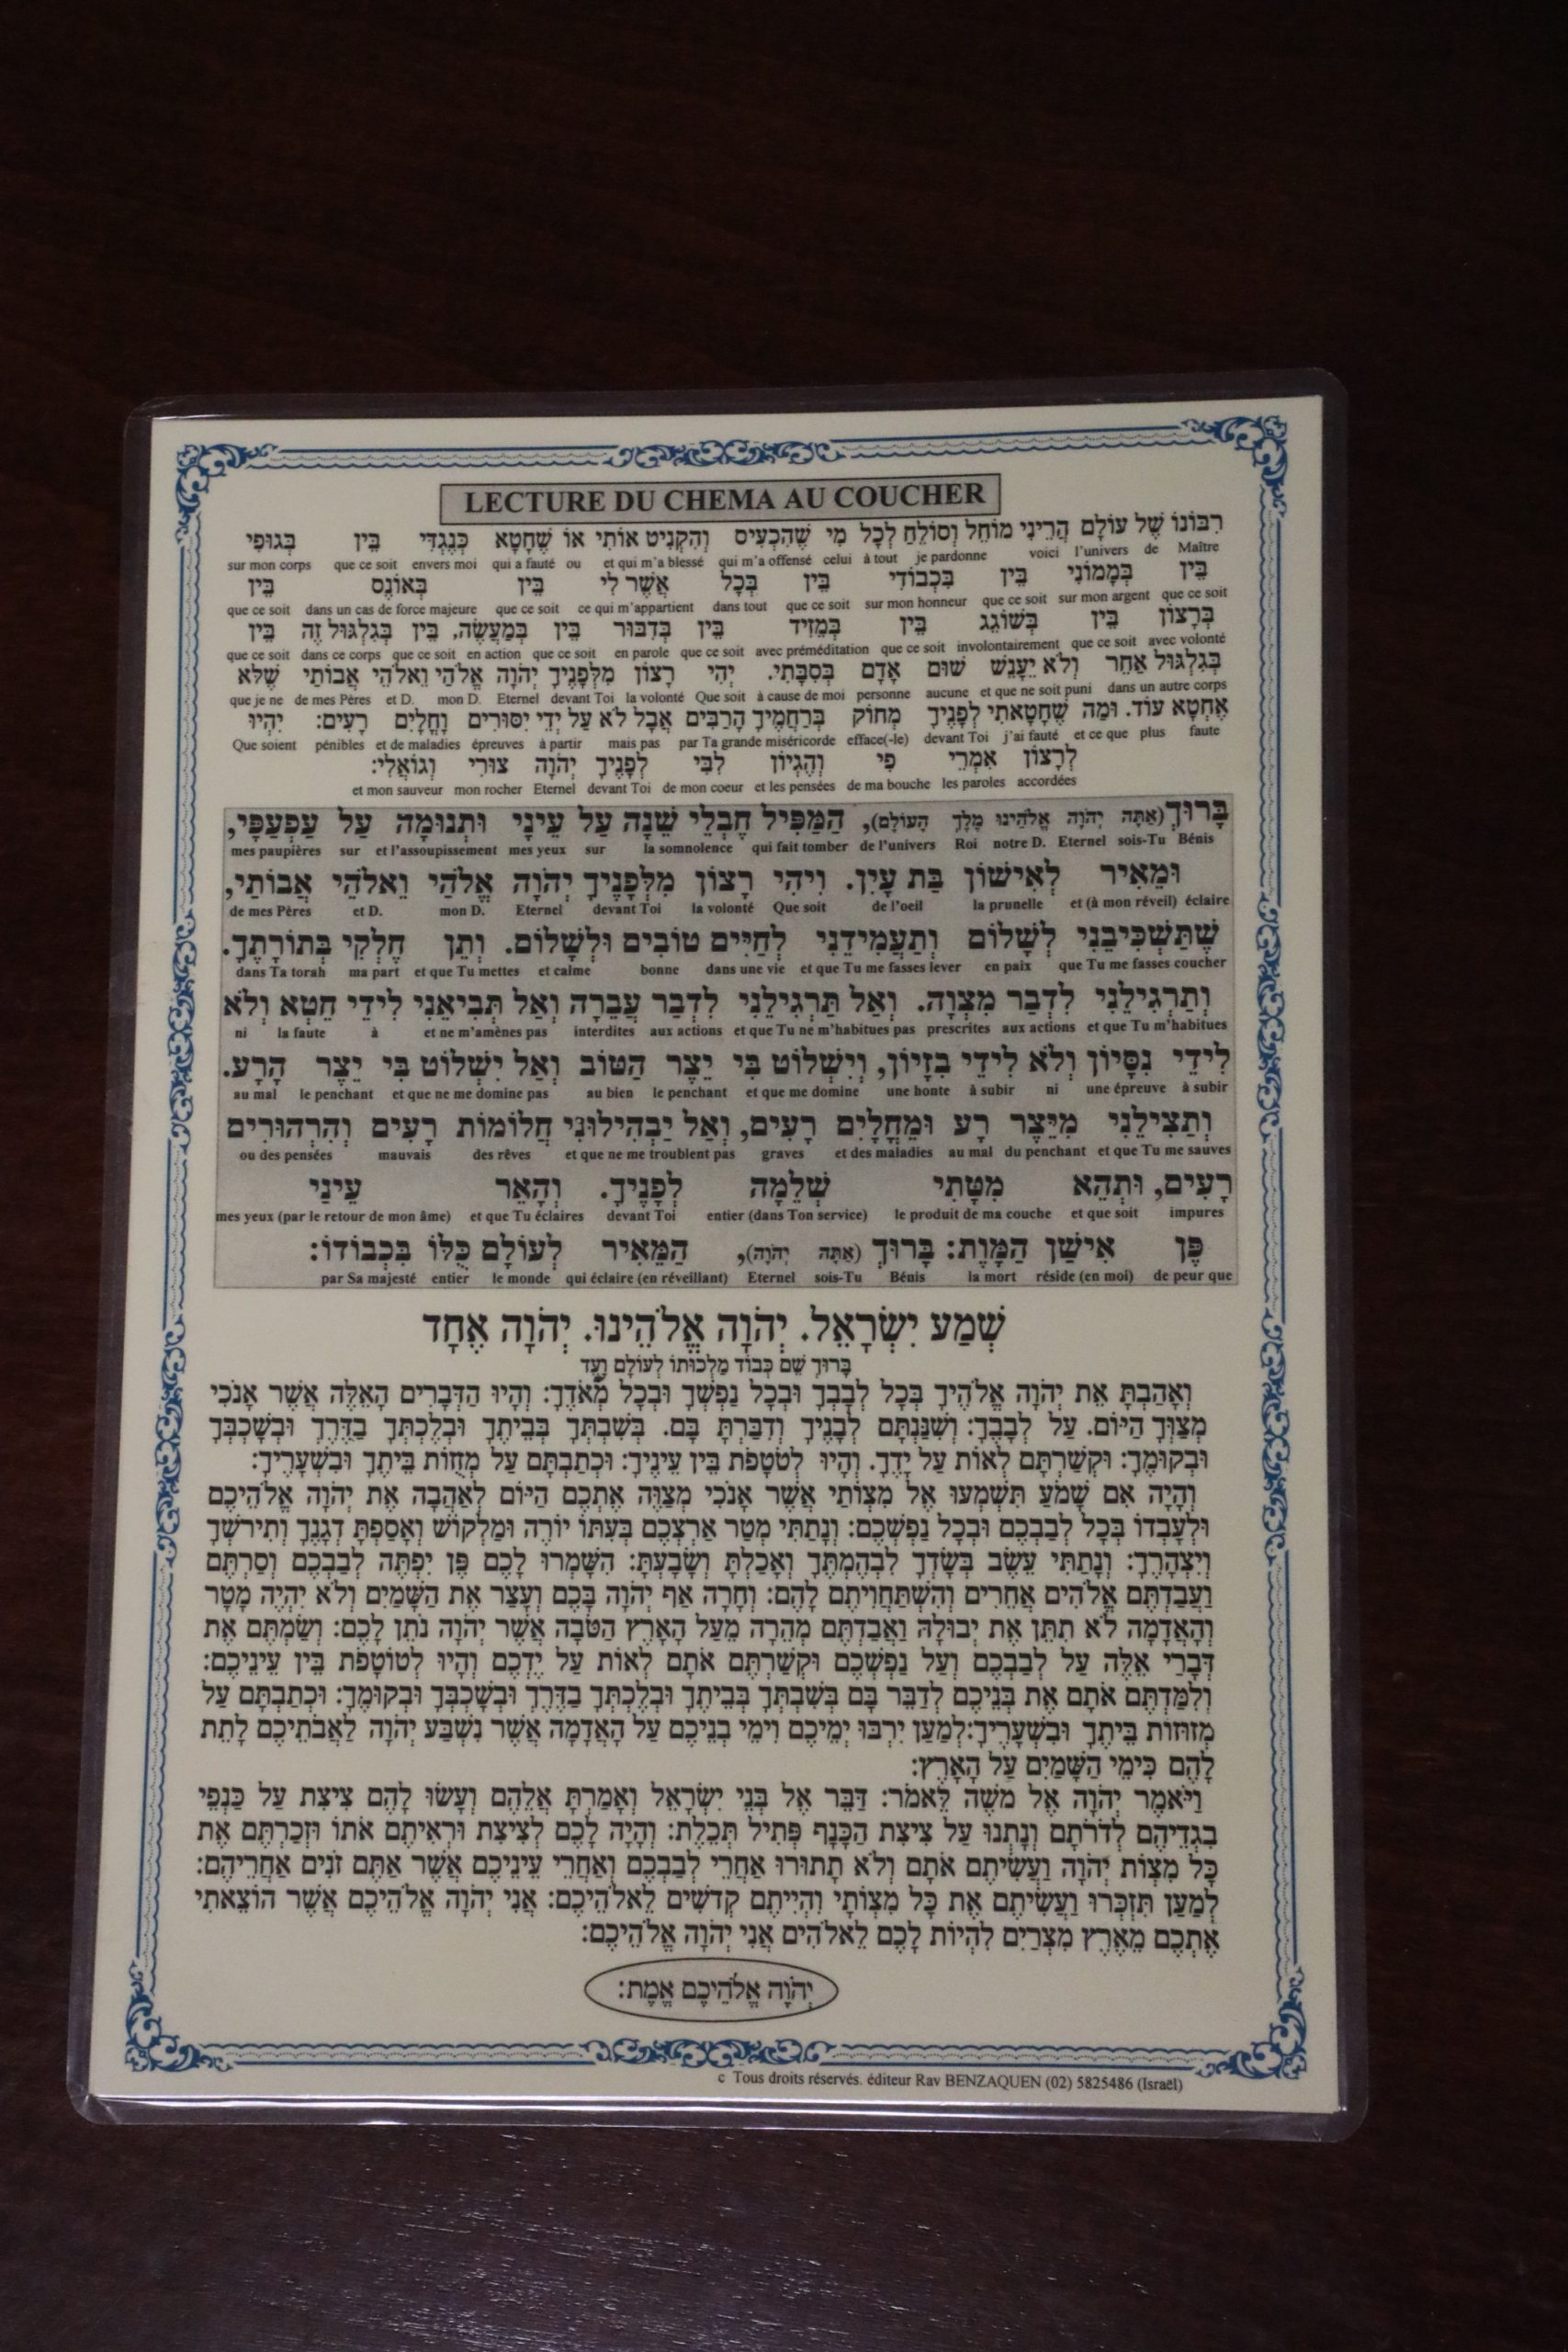 LECTURE DU CHEMA AU COUCHER
רִבּוֹנוֹ שֶׁל עוֹלָם הֲרֵינִי מוֹחֵל וְסוֹלֵחַ לְכָל מִי שֶׁהִכְעִיס וְהִקְנִיט אוֹתִי אוֹ שֶׁחָטָא כְּנֶגְדִּי בֵּין בְּגוּפִי
Maître de l'univers voici je pardonne à tout celui qui m'a offensé et qui m'a blessé ou qui a fauté envers moi que ce soit sur mon corps
בֵּין בְּמָמוֹנִי בֵּין בִּכְבוֹדִי בֵּין בְּכָל אֲשֶׁר לִי בֵּין בְּאוֹנֶס בֵּין
que ce soit sur mon argent que ce soit sur mon honneur que ce soit dans tout ce qui m'appartient que ce soit dans un cas de force majeure que ce soit
בְּרָצוֹן בֵּין בְּשׁוֹגֵג בֵּין בְּמֵזִיד בֵּין בְּדִבּוּר בֵּין בְּמַעֲשֶׂה, בֵּין בְּגִלְגּוּל זֶה בֵּין
avec volonté que ce soit involontairement que ce soit avec préméditation que ce soit en parole que ce soit en action que ce soit dans ce corps que ce soit
בְּגִלְגּוּל אַחֵר וְלֹא יֵעָנֵשׁ שׁוּם אָדָם בְּסִבָּתִי. יְהִי רָצוֹן מִלְּפָנֶיךָ יְהֹוָה אֱלֹהַי וֵאלֹהֵי אֲבוֹתַי שֶׁלֹּא
dans un autre corps et que ne soit puni aucune personne à cause de moi Que soit la volonté devant Toi Eternel mon D. et D. de mes Pères que je ne
אֶחְטָא עוֹד. וּמַה שֶּׁחָטָאתִי לְפָנֶיךָ מְחוֹק בְּרַחֲמֶיךָ הָרַבִּים אֲבָל לֹא עַל יְדֵי יִסּוּרִים וָחֳלָיִם רָעִים: יִהְיוּ
faute plus et ce que j'ai fauté devant Toi efface(-le) par Ta grande miséricorde mais pas à partir épreuves et de maladies pénibles Que soient
לְרָצוֹן אִמְרֵי פִי וְהֶגְיוֹן לִבִּי לְפָנֶיךָ יְהֹוָה צוּרִי וְגוֹאֲלִי:
accordées les paroles de ma bouche et les pensées de mon coeur devant Toi Eternel mon rocher et mon sauveur
בָּרוּךְ (אַתָּה יְהֹוָה אֱלֹהֵינוּ מֶלֶךְ הָעוֹלָם), הַמַּפִּיל חֶבְלֵי שֵׁנָה עַל עֵינַי וּתְנוּמָה עַל עַפְעַפָּי,
Bénis sois-Tu Eternel notre D. Roi de l'univers qui fait tomber la somnolence sur mes yeux et l'assoupissement sur mes paupières
וּמֵאִיר לְאִישׁוֹן בַּת עָיִן. וִיהִי רָצוֹן מִלְּפָנֶיךָ יְהֹוָה אֱלֹהַי וֵאלֹהֵי אֲבוֹתַי,
et (à mon réveil) éclaire la prunelle de l'oeil Que soit la volonté devant Toi Eternel mon D. et D. de mes Pères
שֶׁתַּשְׁכִּיבֵנִי לְשָׁלוֹם וְתַעֲמִידֵנִי לְחַיִּים טוֹבִים וּלְשָׁלוֹם. וְתֵן חֶלְקִי בְּתוֹרָתֶךָ.
que Tu me fasses coucher en paix et que Tu me fasses lever dans une vie bonne et calme et que Tu mettes ma part dans Ta torah
וְתַרְגִּילֵנִי לִדְבַר מִצְוָה. וְאַל תַּרְגִּילֵנִי לִדְבַר עֲבֵרָה וְאַל תְּבִיאֵנִי לִידֵי חֵטְא וְלֹא
et que Tu m'habitues aux actions prescrites et que Tu ne m'habitues pas aux actions interdites et ne m'amènes pas à la faute ni
לִידֵי נִסָּיוֹן וְלֹא לִידֵי בִזָּיוֹן, וְיִשְׁלוֹט בִּי יֵצֶר הַטּוֹב וְאַל יִשְׁלוֹט בִּי יֵצֶר הָרָע.
à subir une épreuve ni à subir une honte et que me domine le penchant au bien et que ne me domine pas le penchant au mal
וְתַצִּילֵנִי מִיֵּצֶר רָע וּמֵחֳלָיִים רָעִים, וְאַל יַבְהִילוּנִי חֲלוֹמוֹת רָעִים וְהִרְהוּרִים
et que Tu me sauves du penchant au mal et des maladies graves et que ne me troublent pas des rêves mauvais ou des pensées
רָעִים, וּתְהֵא מִטָּתִי שְׁלֵמָה לְפָנֶיךָ. וְהָאֵר עֵינַי
impures et que soit le produit de ma couche entier (dans Ton service) devant Toi et que Tu éclaires mes yeux (par le retour de mon âme)
פֶּן אִישַׁן הַמָּוֶת: בָּרוּךְ (אַתָּה יְהֹוָה), הַמֵּאִיר לְעוֹלָם כֻּלּוֹ בִּכְבוֹדוֹ:
de peur que réside (en moi) la mort Bénis sois-Tu Eternel qui éclaire (en réveillant) le monde entier par Sa majesté
שְׁמַע יִשְׂרָאֵל. יְהֹוָה אֱלֹהֵינוּ. יְהֹוָה אֶחָד
בָּרוּךְ שֵׁם כְּבוֹד מַלְכוּתוֹ לְעוֹלָם וָעֶד
וְאָהַבְתָּ אֵת יְהֹוָה אֱלֹהֶיךָ בְּכָל לְבָבְךָ וּבְכָל נַפְשְׁךָ וּבְכָל מְאֹדֶךָ: וְהָיוּ הַדְּבָרִים הָאֵלֶּה אֲשֶׁר אָנֹכִי
מְצַוְּךָ הַיּוֹם. עַל לְבָבֶךָ: וְשִׁנַּנְתָּם לְבָנֶיךָ וְדִבַּרְתָּ בָּם. בְּשִׁבְתְּךָ בְּבֵיתֶךָ וּבְלֶכְתְּךָ בַדֶּרֶךְ וּבְשָׁכְבְּךָ
וּבְקוּמֶךָ: וּקְשַׁרְתָּם לְאוֹת עַל יָדֶךָ. וְהָיוּ לְטֹטָפֹת בֵּין עֵינֶיךָ: וּכְתַבְתָּם עַל מְזֻזוֹת בֵּיתֶךָ וּבִשְׁעָרֶיךָ:
וְהָיָה אִם שָׁמֹעַ תִּשְׁמְעוּ אֶל מִצְוֹתַי אֲשֶׁר אָנֹכִי מְצַוֶּה אֶתְכֶם הַיּוֹם לְאַהֲבָה אֶת יְהֹוָה אֱלֹהֵיכֶם
וּלְעָבְדוֹ בְּכָל לְבַבְכֶם וּבְכָל נַפְשְׁכֶם: וְנָתַתִּי מְטַר אַרְצְכֶם בְּעִתּוֹ יוֹרֶה וּמַלְקוֹשׁ וְאָסַפְתָּ דְגָנֶךָ וְתִירֹשְׁךָ
וְיִצְהָרֶךָ: וְנָתַתִּי עֵשֶׂב בְּשָׂדְךָ לִבְהֶמְתֶּךָ וְאָכַלְתָּ וְשָׂבָעְתָּ: הִשָּׁמְרוּ לָכֶם פֶּן יִפְתֶּה לְבַבְכֶם וְסַרְתֶּם
וַעֲבַדְתֶּם אֱלֹהִים אֲחֵרִים וְהִשְׁתַּחֲוִיתֶם לָהֶם: וְחָרָה אַף יְהֹוָה בָּכֶם וְעָצַר אֶת הַשָּׁמַיִם וְלֹא יִהְיֶה מָטָר
וְהָאֲדָמָה לֹא תִתֵּן אֶת יְבוּלָהּ וַאֲבַדְתֶּם מְהֵרָה מֵעַל הָאָרֶץ הַטֹּבָה אֲשֶׁר יְהֹוָה נֹתֵן לָכֶם: וְשַׂמְתֶּם אֶת
דְּבָרַי אֵלֶּה עַל לְבַבְכֶם וְעַל נַפְשְׁכֶם וּקְשַׁרְתֶּם אֹתָם לְאוֹת עַל יֶדְכֶם וְהָיוּ לְטוֹטָפֹת בֵּין עֵינֵיכֶם:
וְלִמַּדְתֶּם אֹתָם אֶת בְּנֵיכֶם לְדַבֵּר בָּם בְּשִׁבְתְּךָ בְּבֵיתֶךָ וּבְלֶכְתְּךָ בַדֶּרֶךְ וּבְשָׁכְבְּךָ וּבְקוּמֶךָ: וּכְתַבְתָּם עַל
מְזוּזוֹת בֵּיתֶךָ וּבִשְׁעָרֶיךָ:לְמַעַן יִרְבּוּ יְמֵיכֶם וִימֵי בְנֵיכֶם עַל הָאֲדָמָה אֲשֶׁר נִשְׁבַּע יְהֹוָה לַאֲבֹתֵיכֶם לָתֵת
לָהֶם כִּימֵי הַשָּׁמַיִם עַל הָאָרֶץ:
וַיֹּאמֶר יְהֹוָה אֶל מֹשֶׁה לֵּאמֹר: דַּבֵּר אֶל בְּנֵי יִשְׂרָאֵל וְאָמַרְתָּ אֲלֵהֶם וְעָשׂוּ לָהֶם צִיצִת עַל כַּנְפֵי
בִגְדֵיהֶם לְדֹרֹתָם וְנָתְנוּ עַל צִיצִת הַכָּנָף פְּתִיל תְּכֵלֶת: וְהָיָה לָכֶם לְצִיצִת וּרְאִיתֶם אֹתוֹ וּזְכַרְתֶּם אֶת
כָּל מִצְוֹת יְהֹוָה וַעֲשִׂיתֶם אֹתָם וְלֹא תָתוּרוּ אַחֲרֵי לְבַבְכֶם וְאַחֲרֵי עֵינֵיכֶם אֲשֶׁר אַתֶּם זֹנִים אַחֲרֵיהֶם:
לְמַעַן תִּזְכְּרוּ וַעֲשִׂיתֶם אֶת כָּל מִצְוֹתָי וִהְיִיתֶם קְדֹשִׁים לֵאלֹהֵיכֶם: אֲנִי יְהֹוָה אֱלֹהֵיכֶם אֲשֶׁר הוֹצֵאתִי
אֶתְכֶם מֵאֶרֶץ מִצְרַיִם לִהְיוֹת לָכֶם לֵאלֹהִים אֲנִי יְהֹוָה אֱלֹהֵיכֶם:
יְהֹוָה אֱלֹהֵיכֶם אֱמֶת:
c Tous droits réservés. éditeur Rav BENZAQUEN (02) 5825486 (Israël)